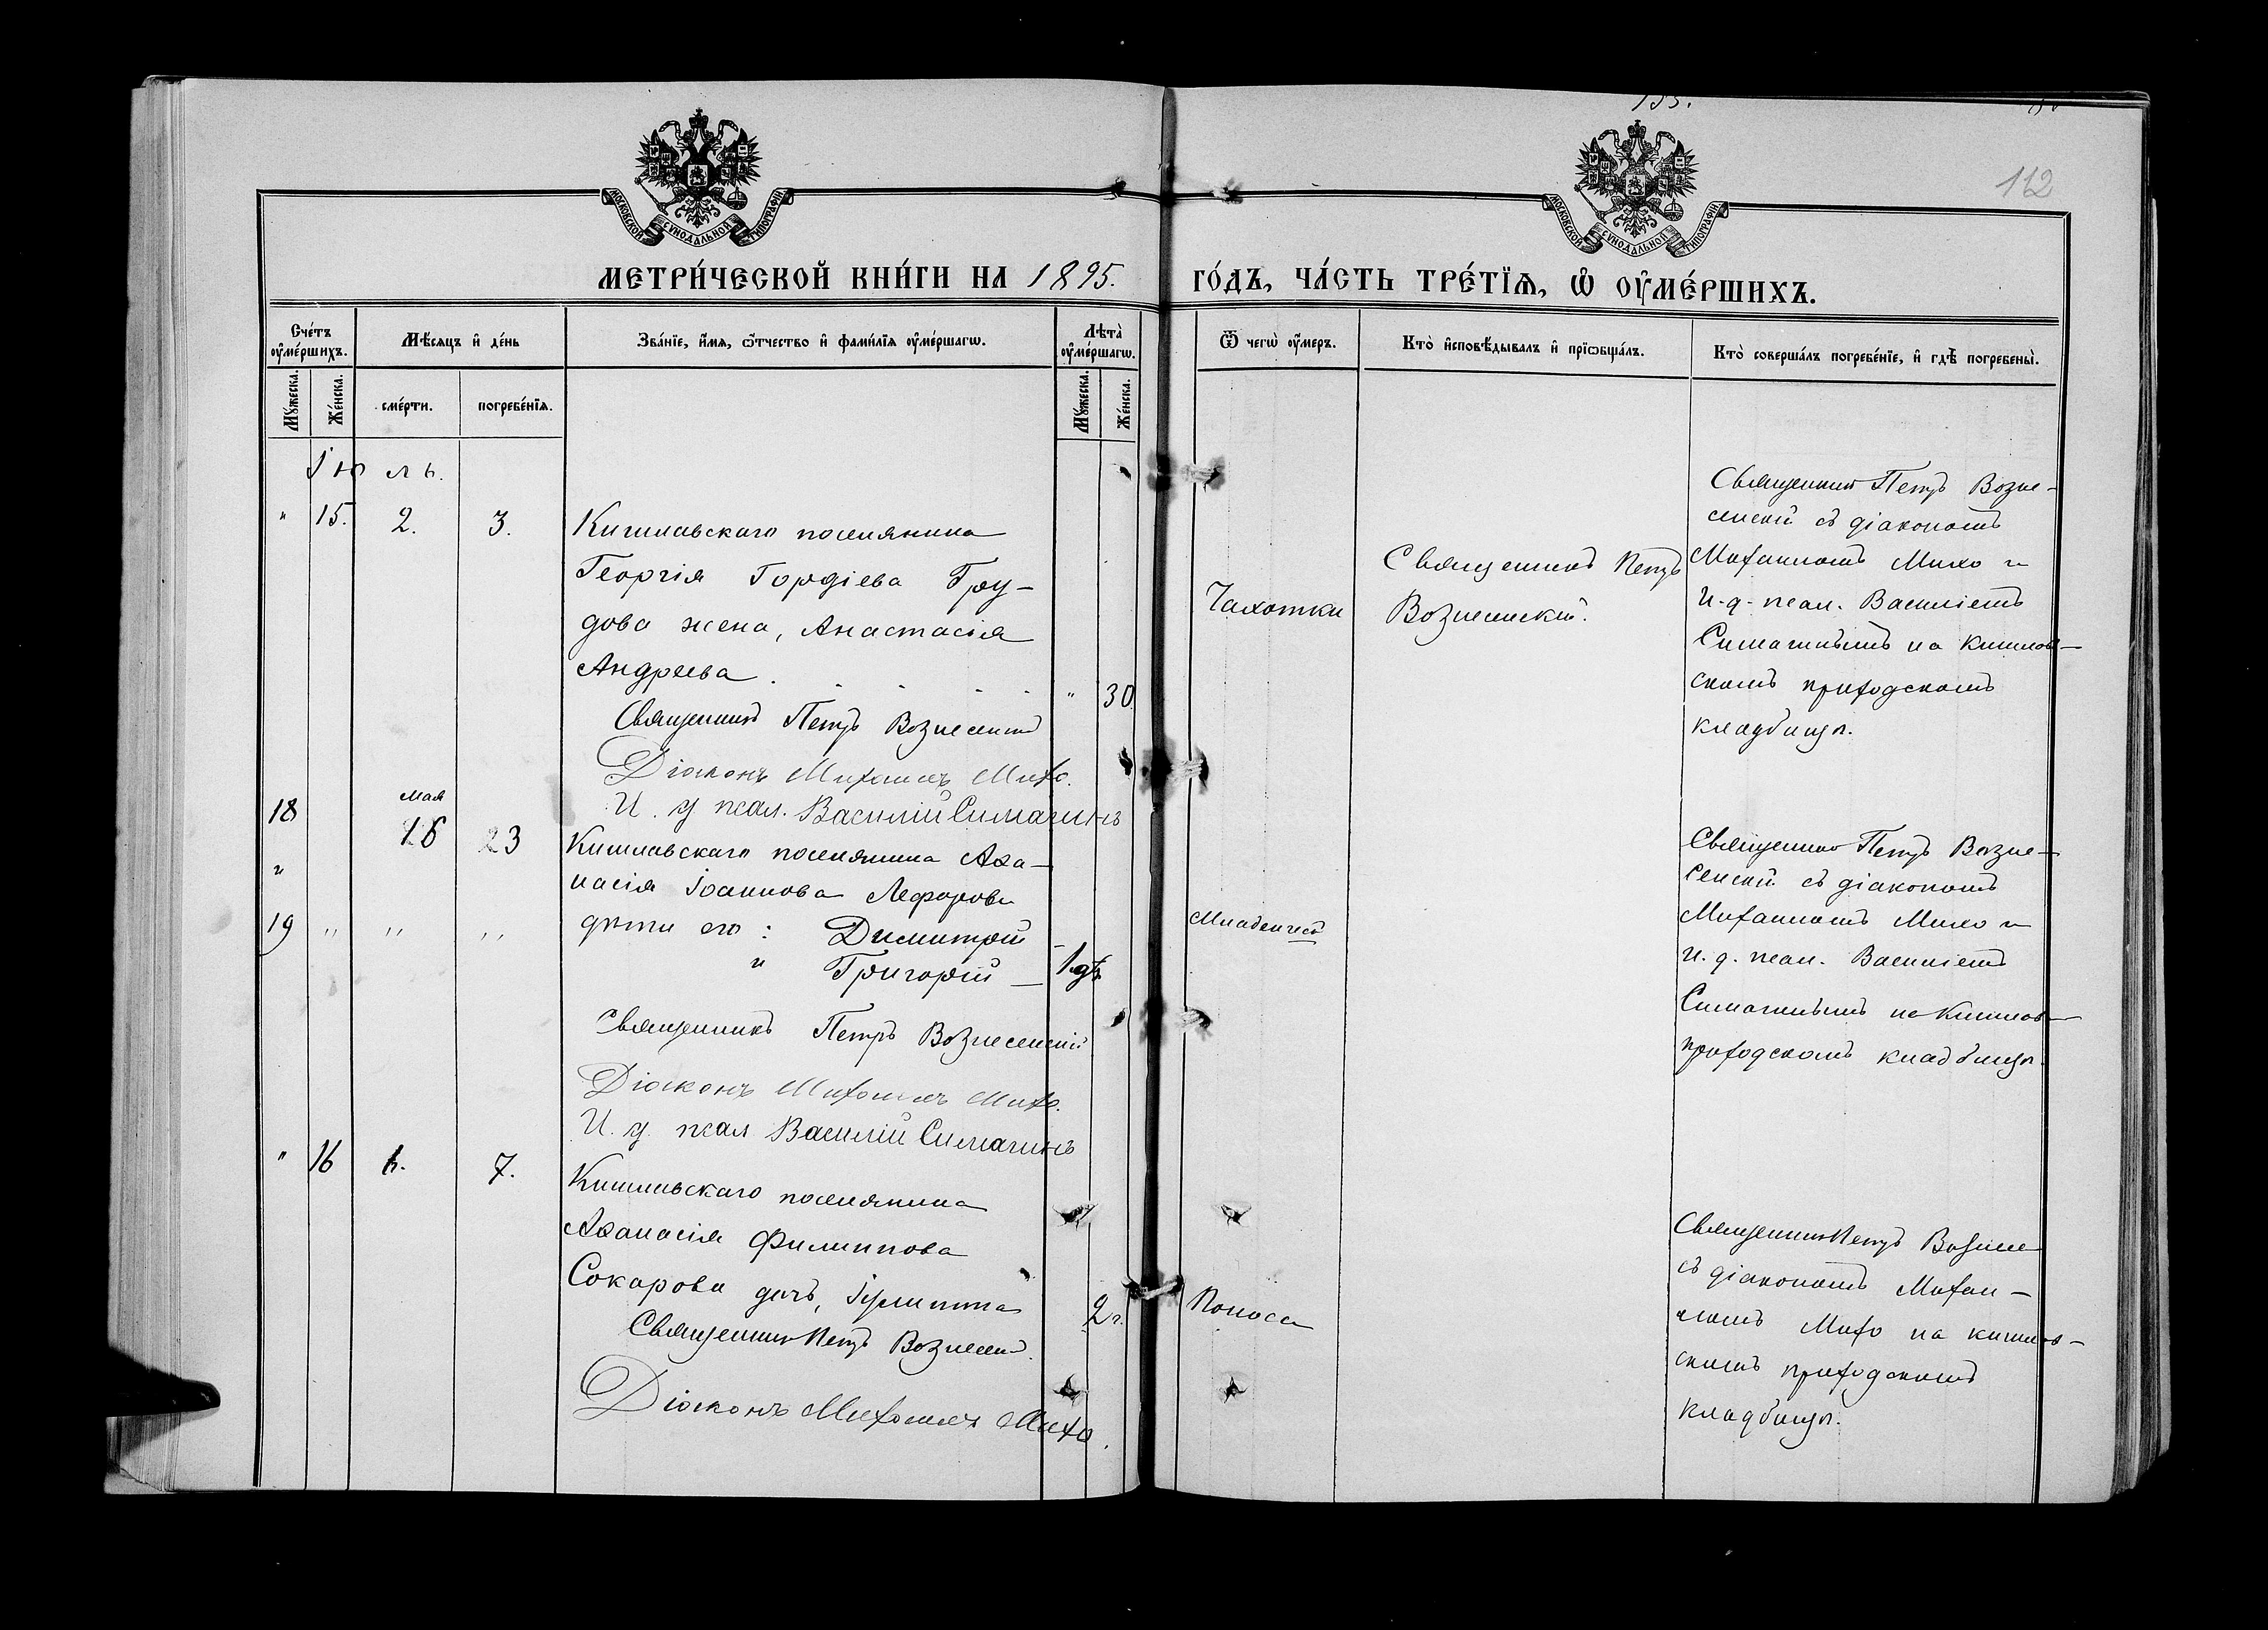 112
МОСКОВСКОЙ СУНОДАЛЬНОЙ ТИПОГРАФІИ
МОСКОВСКОЙ СУНОДАЛЬНОЙ ТИПОГРАФІИ
МЕТРИ́ЧЕСКОЙ КНИ́ГИ НА 1895.
ГО́ДЪ, ЧА́СТЬ ТРЕ́ТЇѦ, Ѡ҆ ОУ҆МЕ́РШИХЪ.
Сче́тъ оу҆ме́ршихъ.
Мѣ́сѧцъ и҆ де́нь
Зва́нїе, и҆́мѧ, ѻ҆́тчество и҆ фами́лїѧ оу҆ме́ршагѡ.
Лѣта̀ оу҆ме́ршагѡ.
Ѿ чегѡ̀ оу҆́меръ.
Кто̀ и҆сповѣ́дывалъ и҆ прїѡбща́лъ.
Кто̀ соверша́лъ погребе́нїе, и҆ гдѣ̀ погребены̀.
Мꙋ́жеска.
Же́нска.
сме́рти.
погребе́нїѧ.
Мꙋ́жеска.
Же́нска.
Іюль.
" 15. 2. 3.
Кишлавскаго поселянина
Георгія Гордіева Гру-
дова жена, Анастасія
Андреева . . . . " 30.
Священникъ Петръ Вознесенскій
Діаконъ Михаилъ Михо.
И. д псал. Василій Симагинъ
Чахотки
Священникъ Петръ
Вознесенскій.
Священникъ Петръ Возне-
сенскій съ діакономъ
Михаиломъ Михо и
и. д. псал. Василіемъ
Симагинымъ на Кишлав-
скомъ приходскомъ
кладбищѣ.
18 Мая
16 23
и
19 " " "
Кишлавскаго поселянина Аѳа-
насія Іоаннова
дѣти его: Димитрій -
и Григорій - 1 дн
Священникъ Петръ Вознесенскій
Діаконъ Михаилъ Михо.
И. д. псал Василій Симагинъ
Младенчест
Священникъ Петръ Возне-
сенскій съ діакономъ
Михаиломъ Михо и
и. д. псал. Василіемъ
Симагинымъ на Кишлав-
приходскомъ кладбищѣ.
" 16 7.
Кишлавскаго поселянина
Аѳанасія Филиппова
Сокарова дочь, Іулитта 2 г.
Священникъ Петръ Вознесенскій
Діаконъ Михаилъ Михо.
Поноса
Священникъ Петръ Вознесен
съ діакономъ Михаи-
ломъ Михо на кишлав-
скомъ приходскомъ
кладбищѣ.